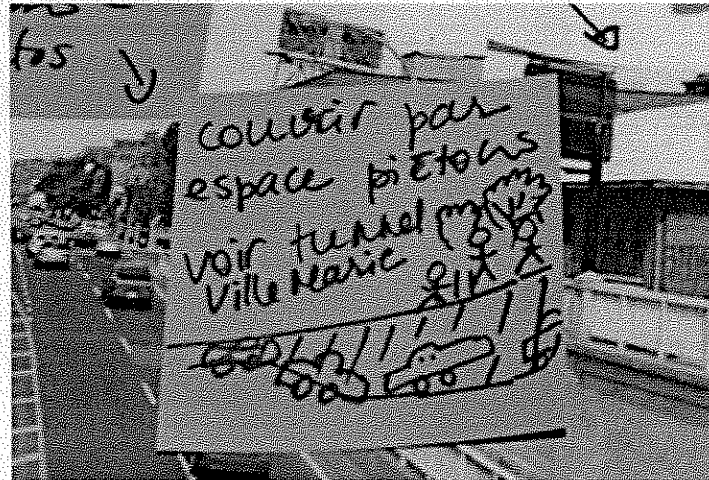 tos
couvrir par
espace piétons
voir tunnel
Ville Marie